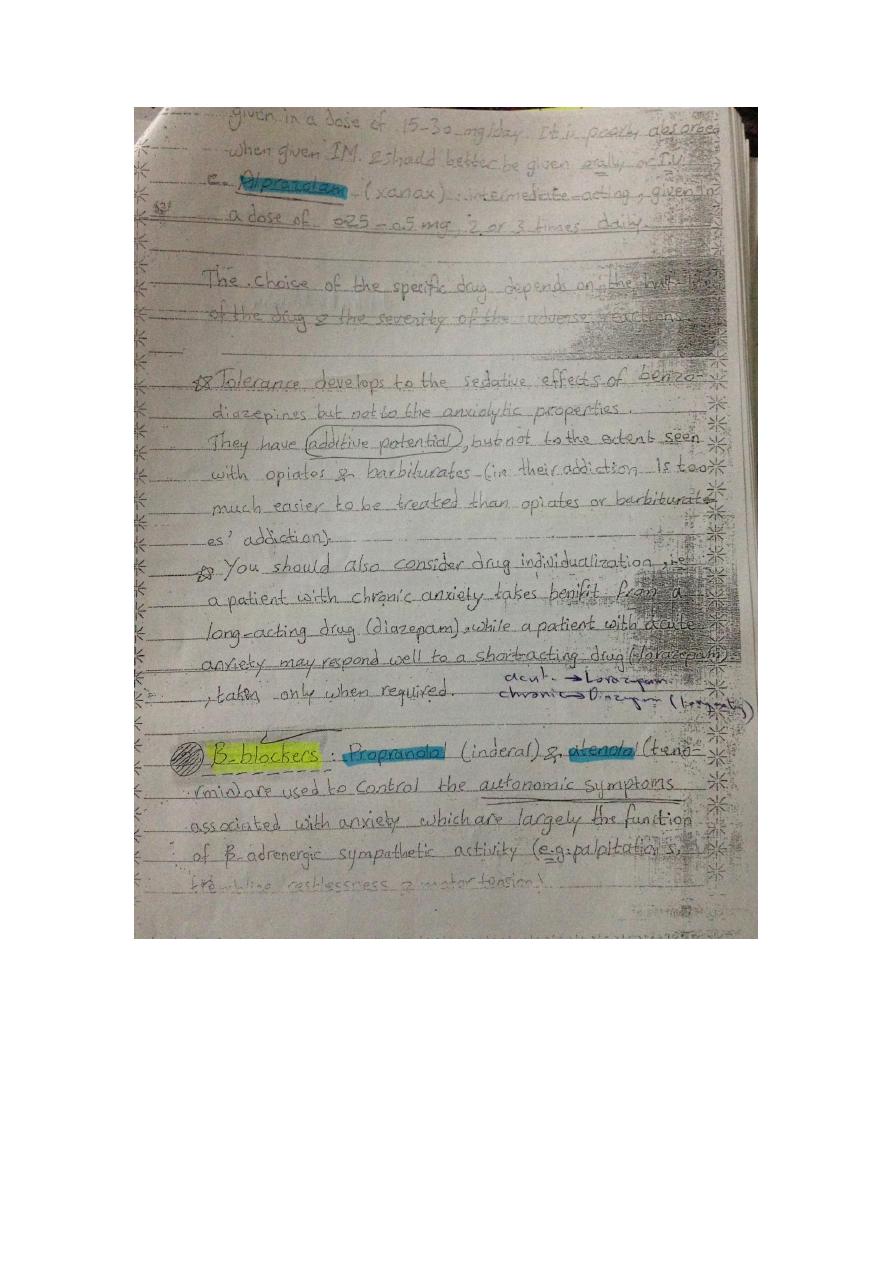 given in a dose of 15-30 mg/day. It is poorly absorbed
when given IM. & should better be given orally or I.V.
c. Alprazolam (xanax) : intermediate-acting, given in
a dose of 0.25 - 0.5 mg, 2 or 3 times daily.
The choice of the specific drug depends on the half life
of the drug & the severity of the adverse reactions.
Tolerance develops to the sedative effects of benzo-
diazepines but not to the anxiolytic properties.
They have additive potential, but not to the extent seen
with opiates & barbiturates (in their addiction is too
much easier to be treated than opiates or barbiturat-
es' addiction).
You should also consider drug individualization, i.e
a patient with chronic anxiety takes benifit from a
long-acting drug (diazepam), while a patient with acute
anxiety may respond well to a short-acting drug (lorazepam)
, taken only when required.
acut. → Lorazepam
chronic → Diazepam
B-blockers : Propranolol (inderal) & atenolol (teno-
rmin) are used to control the autonomic symptoms
associated with anxiety which are largely the function
of β-adrenergic sympathetic activity (e.g: palpitations,
trembling restlessness & motor tension)